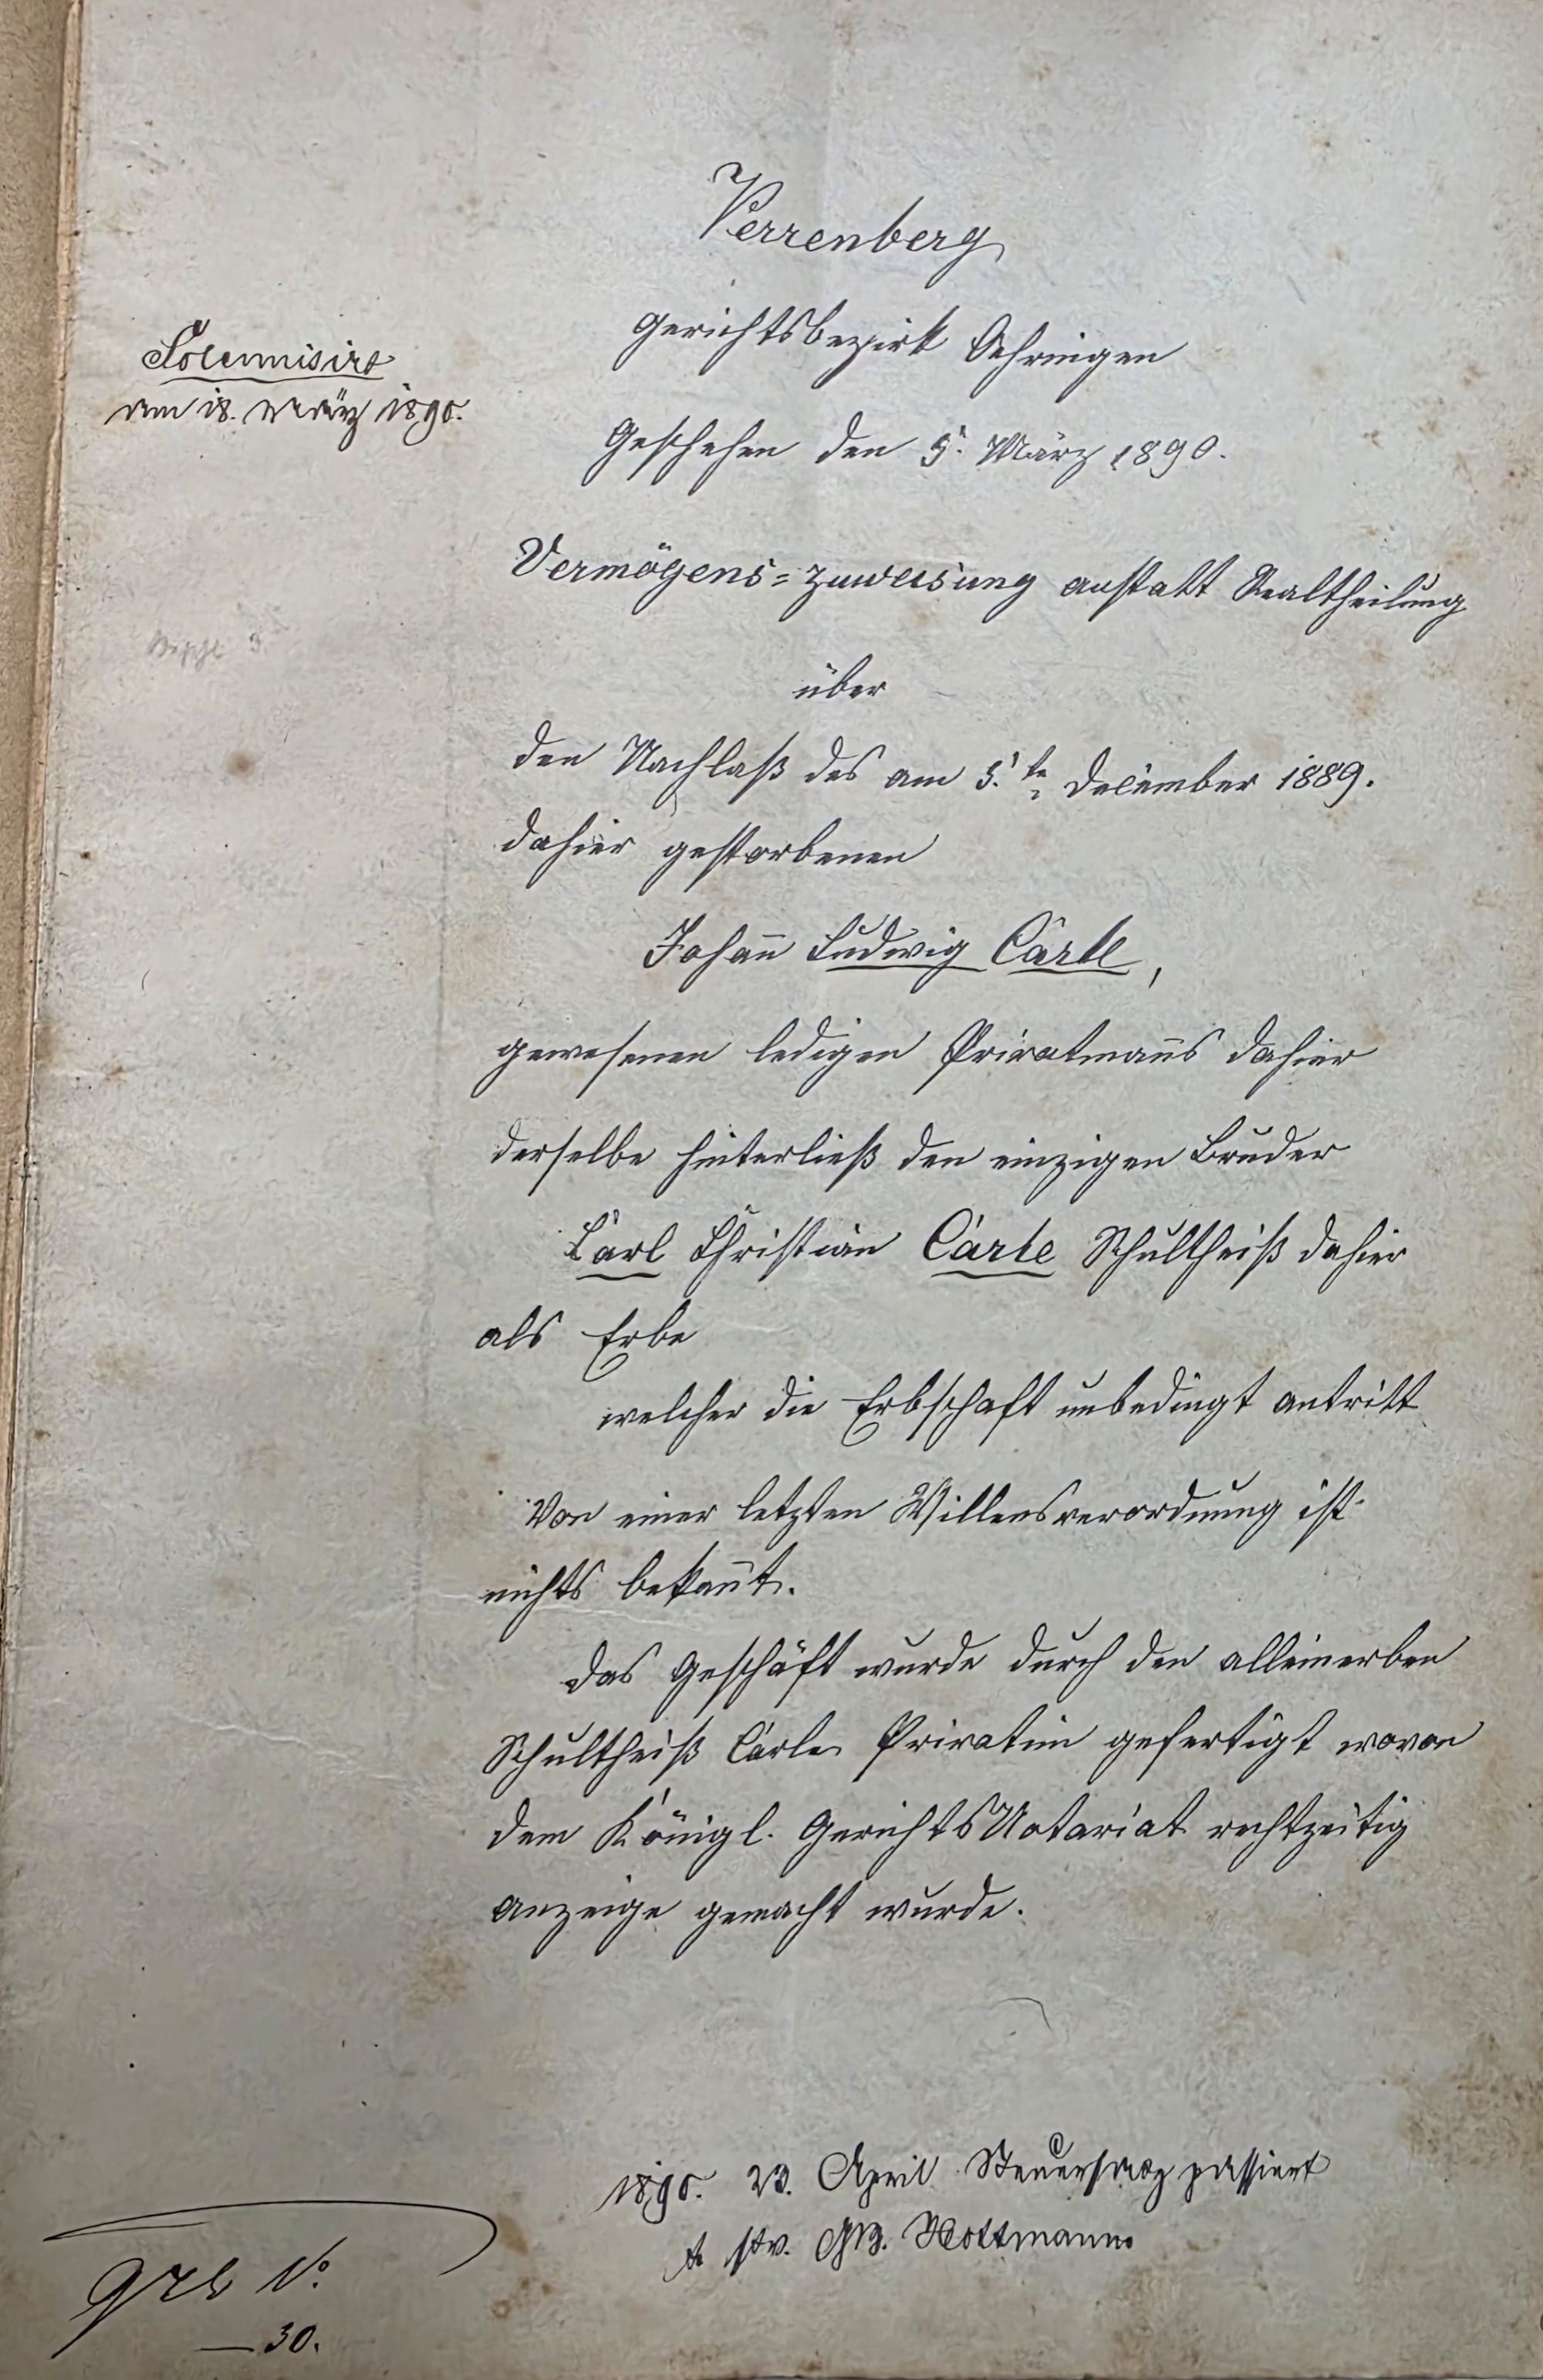 Verrenberg
Gerichtsbezirk Oehringen
Solemnisirt
am 18. März 1890.
Geschehen den 5. März 1890.
Vermögens=Zuweisung anstatt Realtheilung
über
den Nachlaß des am 5. te December 1889.
dahier gestorbenen
Johan̄ Ludwig Carle,
gewesenen ledigen Privatman̄s dahier
derselbe hinterließ den einzigen Bruder
Carl Christian Carle Schultheiß dahier
als Erbe
welcher die Erbschaft unbedingt antritt
Von einer letzten Willensverordnung ist
nichts bekan̄t.
Das Geschäft wurde durch den alleinerben
Schultheiß Carle Privatim gefertigt wovon
dem Königl. Gerichts Notariat rechtzeitig
anzeige gemacht wurde.
1890. 23. April passiert
stv. Rottmann
No.
30.